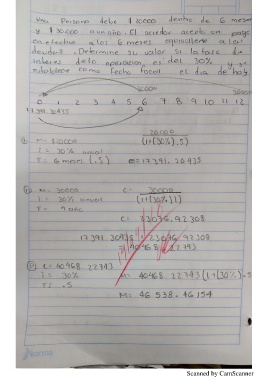 Una Persona debe $20000 dentro de 6 meses
y $30000 a un año. El acreedor acepta un pago
en efectivo a los 6 meses equivalente a las
deudas. Determine su valor si la tasa de
interes de la operacion es del 30% y se
establece como fecha focal el dia de hoy
0 1 2 3 4 5 6 7 8 9 10 11 12
17 391.30435
20000
(1+(30%).5)
i= 30% anual
t= 6 meses (.5)
M= 30000 C= 30000
i= 30% anual (1+(30%)1)
C= 23076.92308
17 391.30435 + 23076.92308
40468.22743
C= 40468.22743
i= 30% M= 40468.22743 (1+(30%).5
t= .5
M= 46 538.46154
Scanned by CamScanner